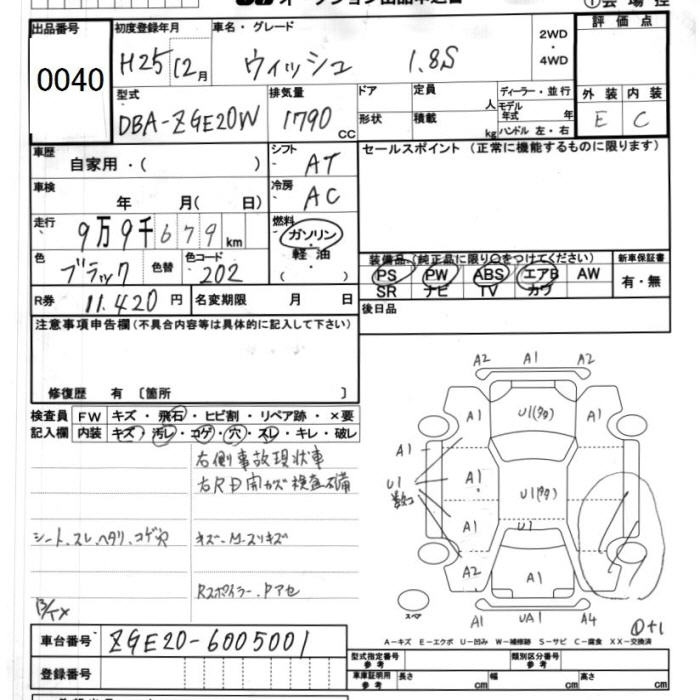 出品番号
0040
初度登録年月
H25 12月
車名・グレード
ウィッシュ 1.8S
2WD
・
4WD
評価点
型式
DBA-ZGE20W
排気量
1790 CC
ドア
定員
人
形状
積載
kg
ディーラー・並行
モデル年式 年
ハンドル 左・右
外装 内装
E C
車歴
自家用・( )
シフト
AT
車検
年 月( 日)
冷房
AC
走行
9万9千679km
燃料
ガソリン
・
軽油
( )
色
ブラック
色替
色コード
202
R券 11.420 円
名変期限 月 日
セールスポイント (正常に機能するものに限ります)
装備品 (純正品に限り○をつけてください)
新車保証書
PS PW ABS エアB AW
有・無
SR ナビ TV カワ
後日品
注意事項申告欄(不具合内容等は具体的に記入して下さい)
修復歴 有〔箇所 〕
検査員 FW キズ・飛石・ヒビ割・リペア跡・×要
記入欄 内装 キズ・汚レ・コゲ・穴・スレ・キレ・破レ
右側事故現状車
右RD開カズ検査不備
シート、スレ、ヘタリ、コゲ穴
キズ・M・スリキズ
Rスポイラー・Pアセ
A2 A1 A2
A1 U1(多) A1
A1
U1
数コ
A1 U1(多)
A1 U1
A2 A1
スペア
A1 UA1 A4
A-キズ E-エクボ U-凹み W-補修跡 S-サビ C-腐食 XX-交換済
車台番号 ZGE20-6005001
登録番号
型式指定番号
参考
類別区分番号
参考
車庫証明用
参考
長さ cm
幅 cm
高さ cm